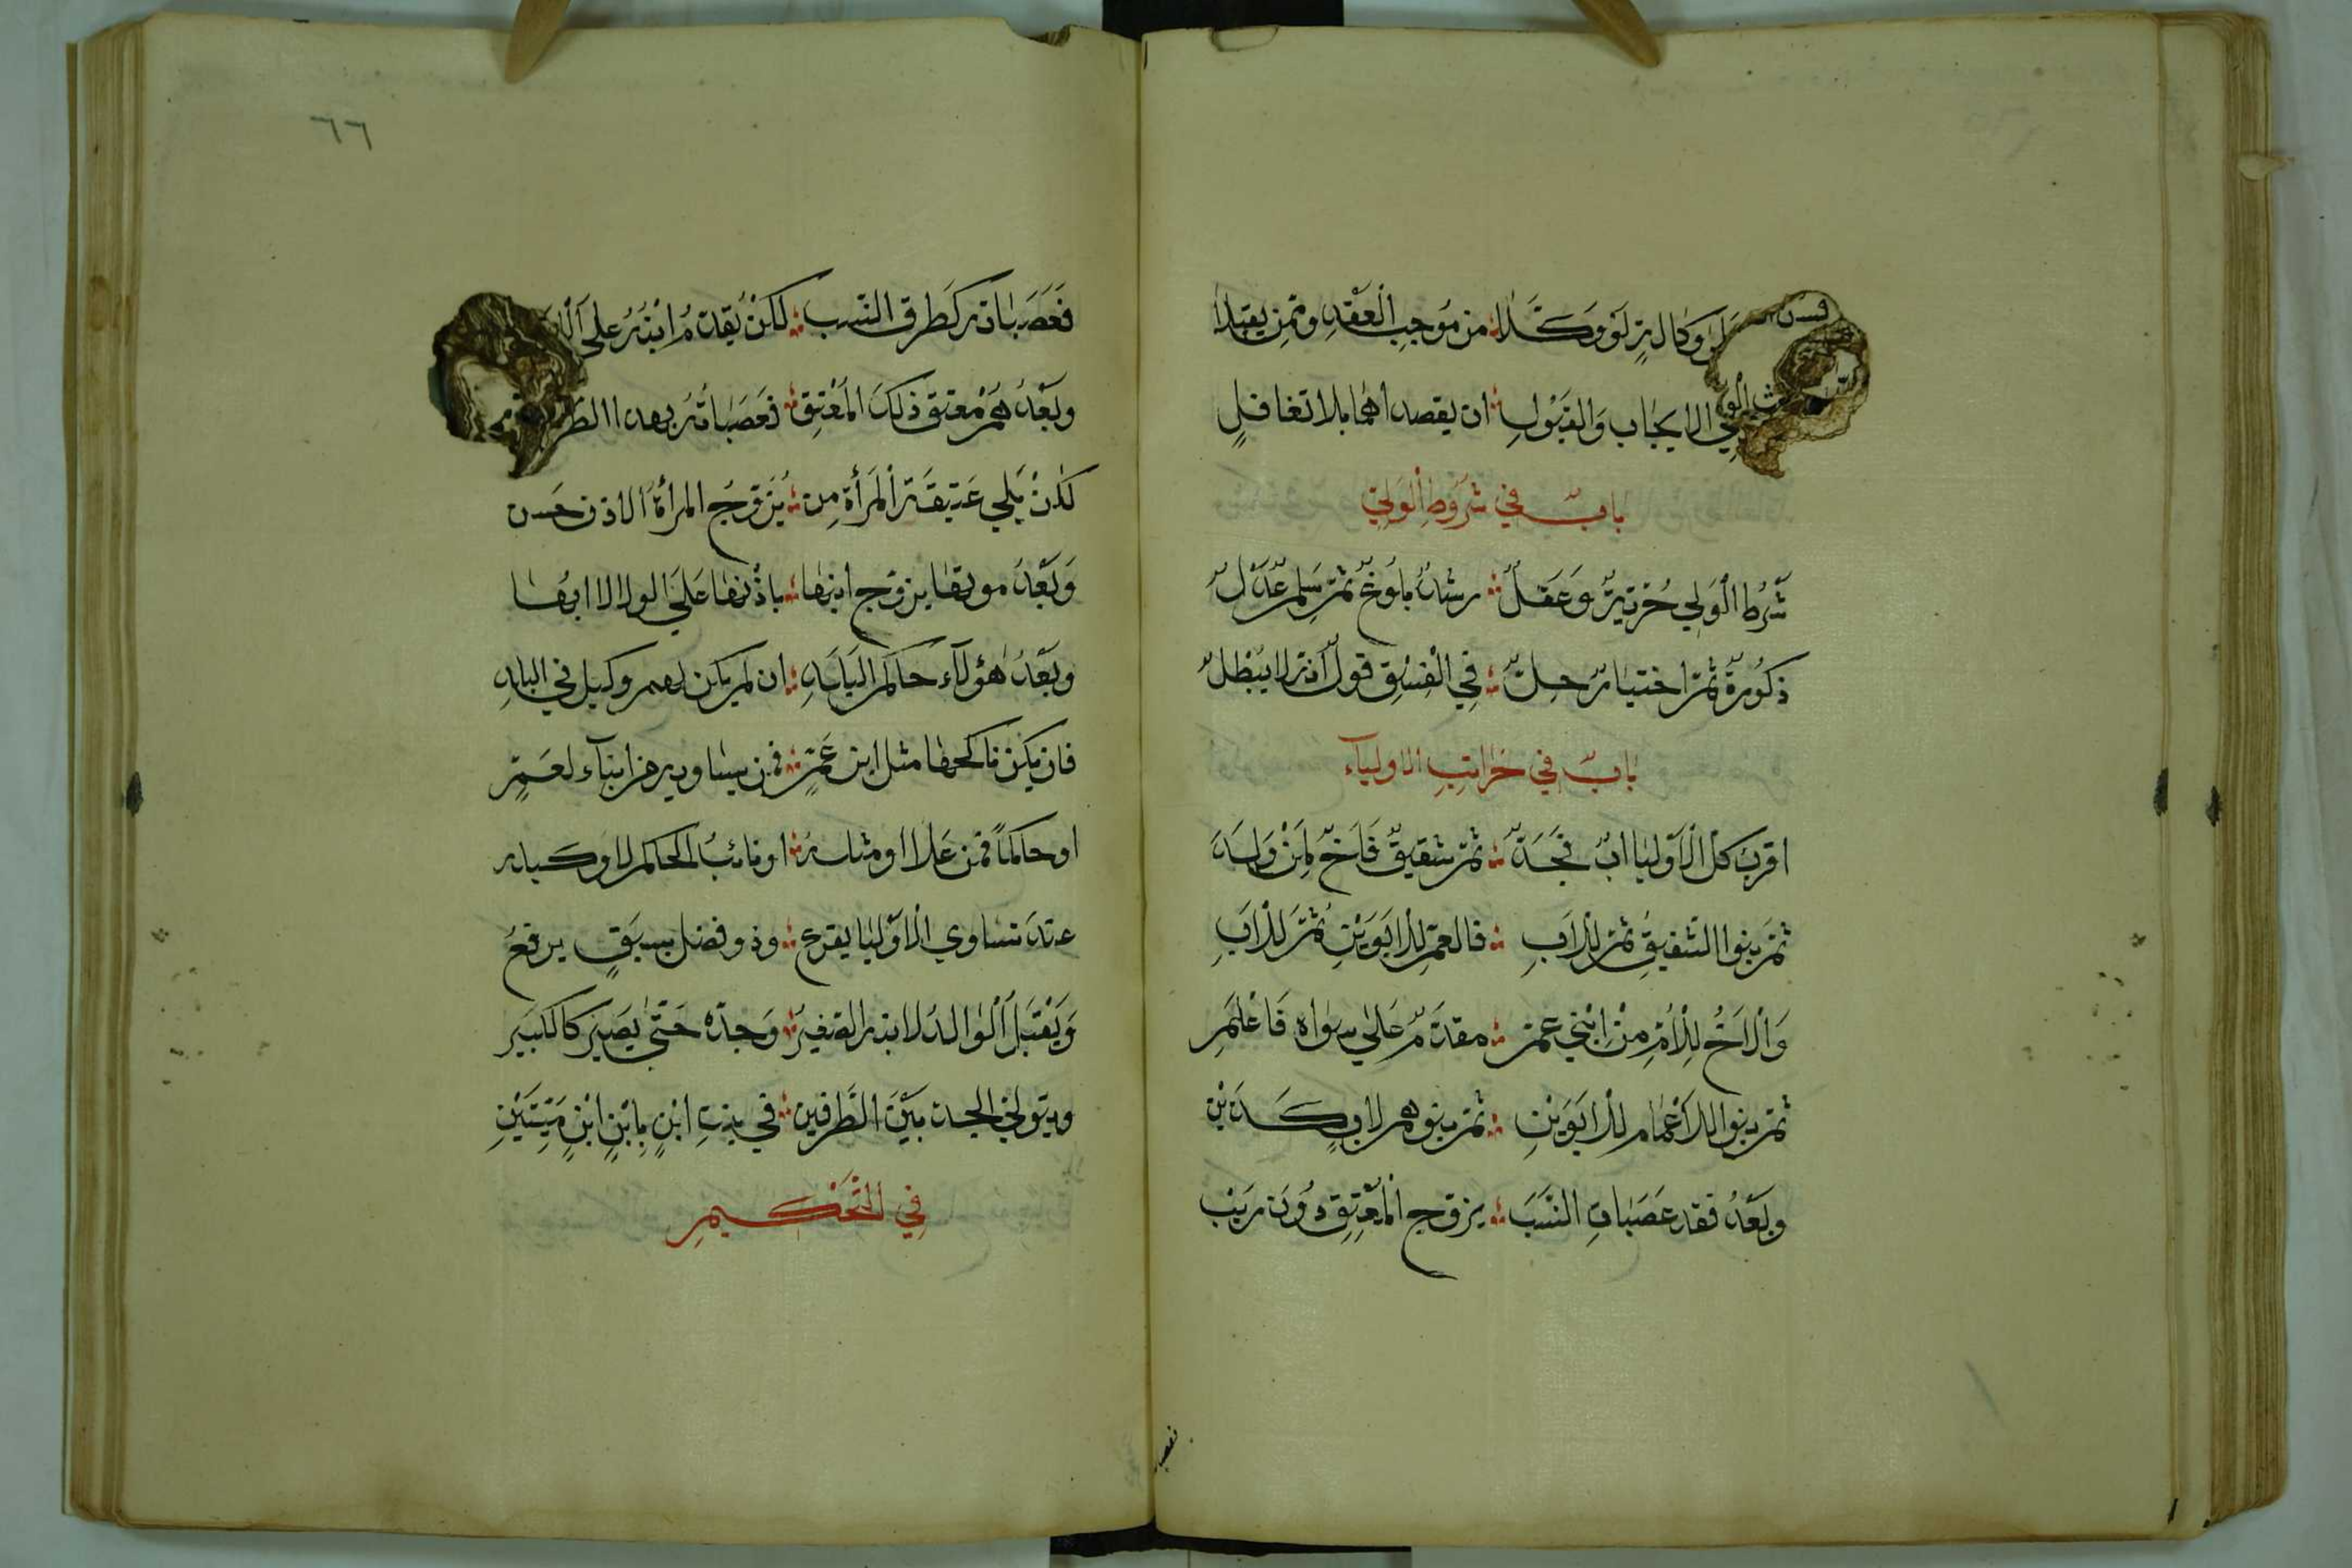 وكالة لو وكلا ؞ من موجب العقد وممن يقبلا
في الايجاب والقبول ؞ ان يقصداهما بلا تغافل
باب في شروط الولي
شرط الولي حرية وعقل ؞ رشد بلوغ ثم سلم عدل
ذكورة ثم اختيار حل ؞ في الفسق قول انه لا يبطل
باب في مراتب الاولياء
اقرب كل الاوليا اب فجد ؞ ثم شقيق فاخ لمن ولد
ثم بنوا الشقيق ثم للاب ؞ فالعم للابوين ثم للاب
والاخ للام من ابني عم ؞ مقدم على سواه فاعلم
ثم بنوا الاعمام للابوين ؞ ثم بنوهم لاب كذين
وبعد فقد عصبات النسب ؞ يزوج المعتق دون ريب
فعصب
٦٦
فعصباته كطرق النسب ؞ لكن يقدم ابنه على
وبعد هم معتق ذلك المعتق ؞ فعصباته بهدا
لكن يلي عتيقة المرأة من ؞ يزوج المرأة الاذن حسن
وبعد موتها يزوج ابنها ؞ باذنها على الولا لا ابها
وبعد هؤلاء حاكم البلد ؞ ان لم يكن لهم وكيل في البلد
فان يكن ناكحها مثل ابن عم ؞ فمن يساويه من ابناء لعم
او حاكما فمن علا او مثله ؞ او نائب الحاكم لا وكيله
عند تساوي الاوليا يقرع ؞ وذو فضل بسبق يرفع
ويقبل الوالد لابنه الصغير ؞ وجده حتى يصير كالكبير
ويتولى الجد بين الطرفين ؞ في بنت ابن بابن ابن ميتين
في التحكيم